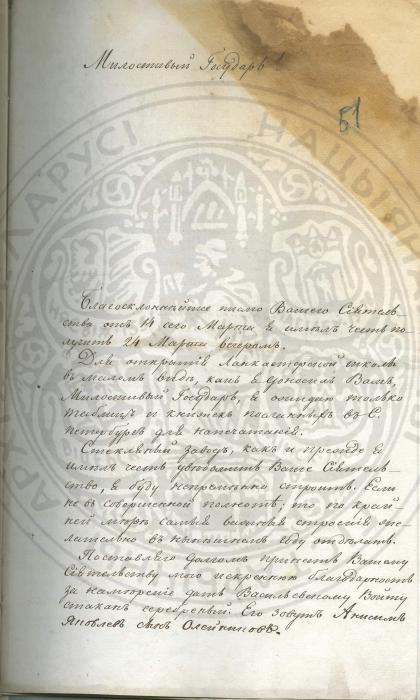 Милостивый Государь!
51
Благосклоннѣйшее писмо Вашего Сіятель-
ства отъ 14 сего Марта я имѣлъ честь по-
лучить 24 Марта вечеромъ.
Для открытія Ланкастерской школы
въ маломъ видѣ, какъ я доносилъ Вамъ,
Милостивый Государь, я ожидаю только
таблицъ и книжекъ посланныхъ въ С.
Петербургъ для напечатанія.
Стекляный заводъ, какъ и прежде я
имѣлъ честь увѣдомлять Ваше Сіятель-
ство, я буду непремѣнно строить. Если
не въ совершенной полнотѣ, то по край-
ней мѣрѣ самыя важныя строенія же-
лательно въ нынѣшнемъ году отдѣлать.
Поставляю долгомъ принесть Вашему
Сіятельству мою искреннюю благодарность
за намѣреніе дать Васильевскому Войту
стаканъ серебреный. Его зовутъ Анисимъ
Яковлевъ сынъ Олейниковъ.
БЕЛАРУСІ
НАЦЫЯНАЛ